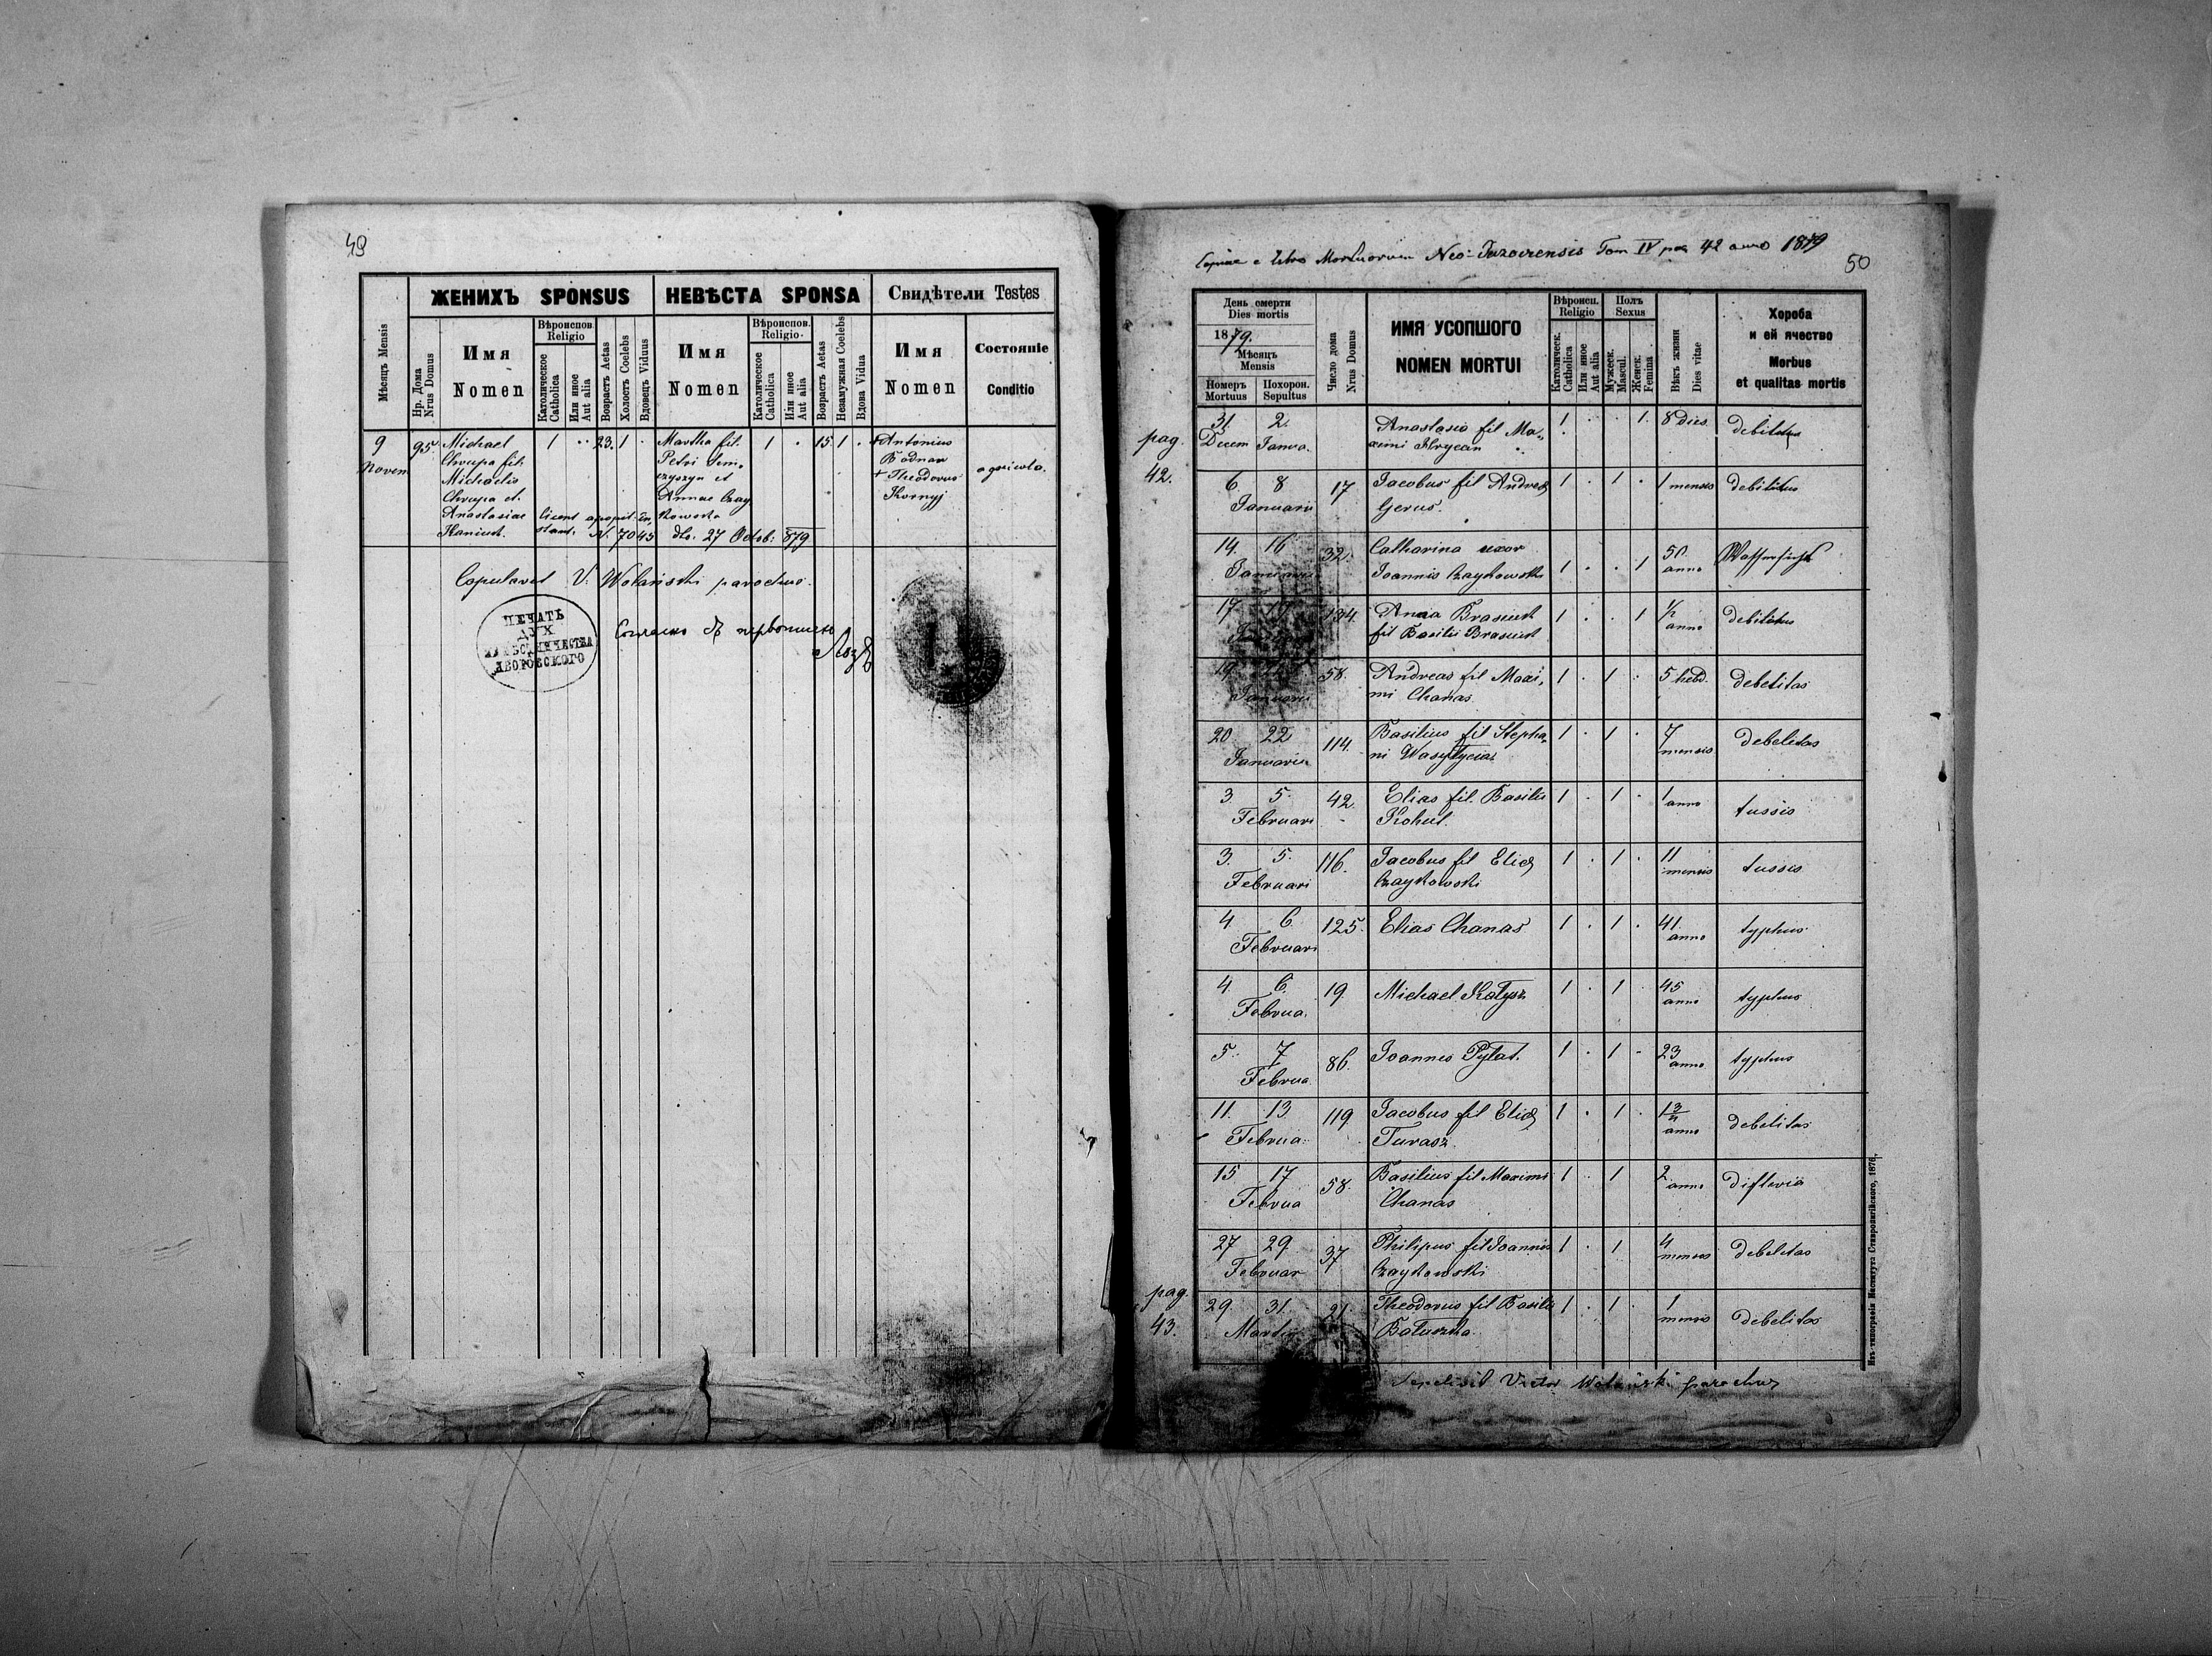 49
ЖЕНИХЪ SPONSUS НЕВѢСТА SPONSA Свидѣтели Testes
Мѣсяцъ Mensis
Нр. Дома
Nrus Domus
Имя
Nomen
Вѣроиспов.
Religio
Католическое
Catholica
Или иное
Aut alia
Возрастъ Aetas
Холостъ Coelebs
Вдовецъ Viduus
Имя
Nomen
Вѣроиспов.
Religio
Католическое
Catholica
Или иное
Aut alia
Возрастъ Aetas
Незамужная Coelebs
Вдова Vidua
Имя
Nomen
Состояніе
Conditio
9
Novem
95.
Michael
Chrupa fil.
Michaelis
Chrupa et
Anastasiae
Haniut.
1 23. 1
Martha fil.
Petri Sem,
czyszyn et
Annae Czay
kowska
1 15 1
+Antonius
Bodnar
+Theodorus
Kornyj
agricola.
N. 7045 dto. 27 Octob: 879
Copulavit V. Wolański parochus.
ПЕЧАТЬ
ДУХ
ЯВОРОВСКОГО
Согласно съ первописью
Copiae e Libro Mortuorum Neo-Jazoviensis Tom IV pag 42 anno 1879
50
День смерти
Dies mortis
1879.
Мѣсяцъ
Mensis
Номеръ
Mortuus
Похорон.
Sepultus
Число дома
Nrus Domus
ИМЯ УСОПШОГО
NOMEN MORTUI
Вѣроисп.
Religio
Католическ.
Catholica
Или иное
Aut alia
Полъ
Sexus
Мужеск.
Mascul.
Женск.
Femina
Вѣкъ жизни
Dies vitae
Хороба
и ей ячество
Morbus
et qualitas mortis
pag.
42.
31. 2. Anastasia fil Ma, 1 1. 8 dies debilitas
Decem Janua. ximi Hrycan
6 8 17 Jacobus fil Andreae 1 1 1 mensis debilitas
Januarii Gerus.
14. 16 32. Catharina uxor 1 1 50 anno Wassersucht
Januarii Joannis Czaykowski
17 134. Anna Brasiut 1 1 1/2 anno debilitas
fil Basilii Brasiut
19. 58. Andreas fil Maxi, 1 1 5 hebd. debelitas
Januarii mi Chanas
20 22 114. Basilius fil Stepha, 1 1 7 mensis debelitas
Januarii ni Wasylycias
3. 5. 42. Elias fil. Basilii 1 1 1 anno tussis
Februari Kohut.
3. 5. 116. Jacobus fil Eliae 1 1 11 mensis tussis
Februari Czaykowski
4 6 125. Elias Chanas 1 1 41. anno typhus
Februari
4 6. 19 Michael Kotysz 1 1 45 anno typhus
Februa.
5. 7 86. Joannes Pylat. 1 1 23 anno typhus
Februa
11. 13. 119 Jacobus fil Eliae 1 1 1 3/4 anno debelitas
Februa. Turasz.
15 17 58. Basilius fil Maximi 1 1 2 anno difteria
Februa Chanas
27 29 37 Philipus fil Joannis 1 1 4 menses debelitas
Februar Czaykowski
pag.
43.
29. 31. 21. Theodorus fil Basilii 1 1 1 mensis debelitas
Martii Batuszka.
Sepelivit Victor Wolański parochus
Изъ типографіи Института Ставропигійского, 1876.